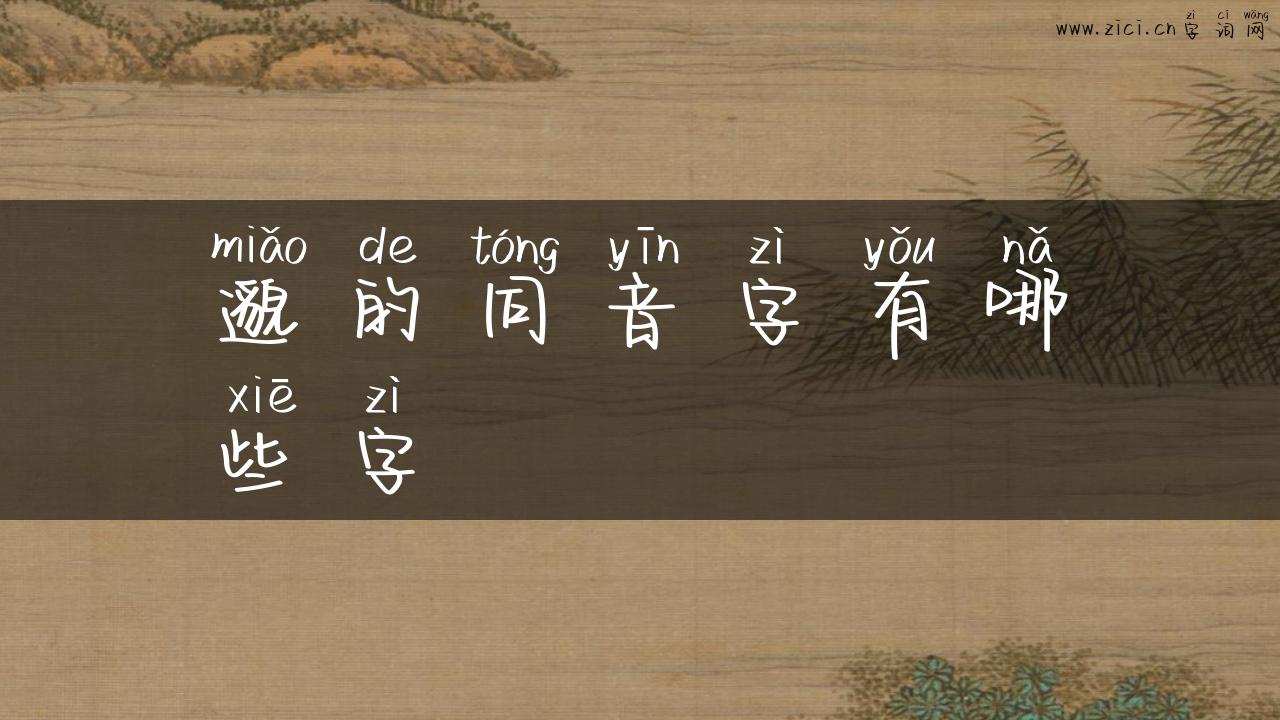 zì cí wǎng
www.zici.cn 字 词 网
miǎo de tóng yīn zì yǒu nǎ
邈 的 同 音 字 有 哪
xiē zì
些 字